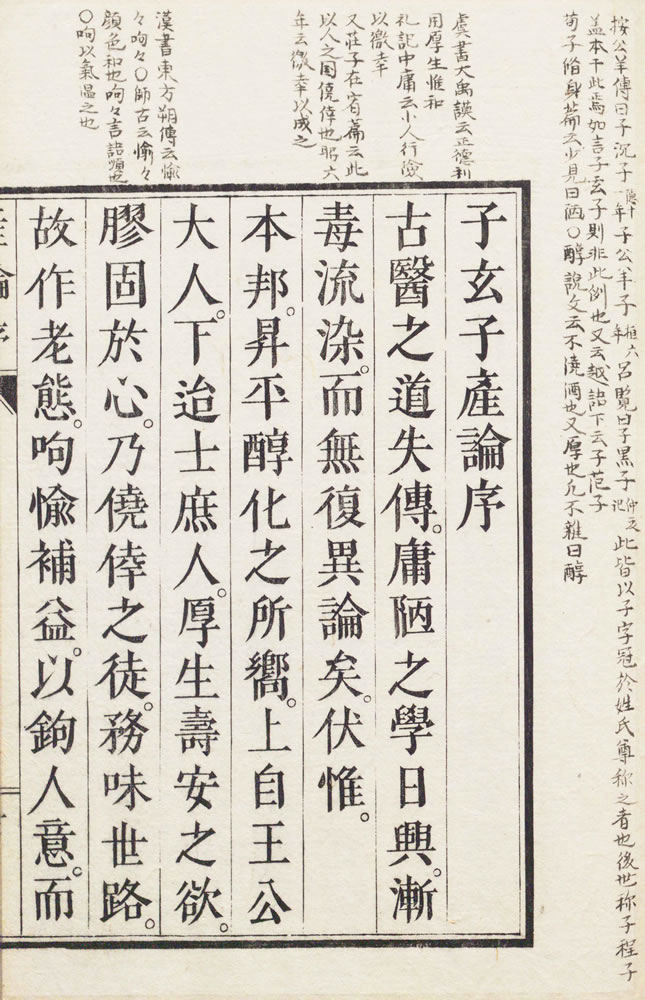 按公羊傳曰子沉子隱十一年子公羊子桓六年呂覽曰子黑子此皆以子字冠於姓氏尊称之者也後世称子程子
盖本于此焉如吉子玄子則非此例也又云越語下云子范子
荀子脩身篇云少見曰陋〇醇說文云不澆酒也又厚也凡不雜曰醇
虞書大禹謨云正德利
用厚生惟和
礼記中庸云小人行險
以徼幸
又莊子在宥篇云此
以人之国僥倖也昭六
年云徼幸以成之
漢書東方朔傳云愉
々呴々〇師古云愉々
顔色和也呴々言語順也
〇呴以氣温之也
子玄子產論序
古醫之道失傳。庸陋之學日興。漸
毒流染。而無復異論矣。伏惟。
本邦。昇平醇化之所嚮。上自王公
大人。下迨士庶人。厚生壽安之欲。
膠固於心。乃僥倖之徒。務味世路。
故作老態。呴愉補益。以鉤人意。而